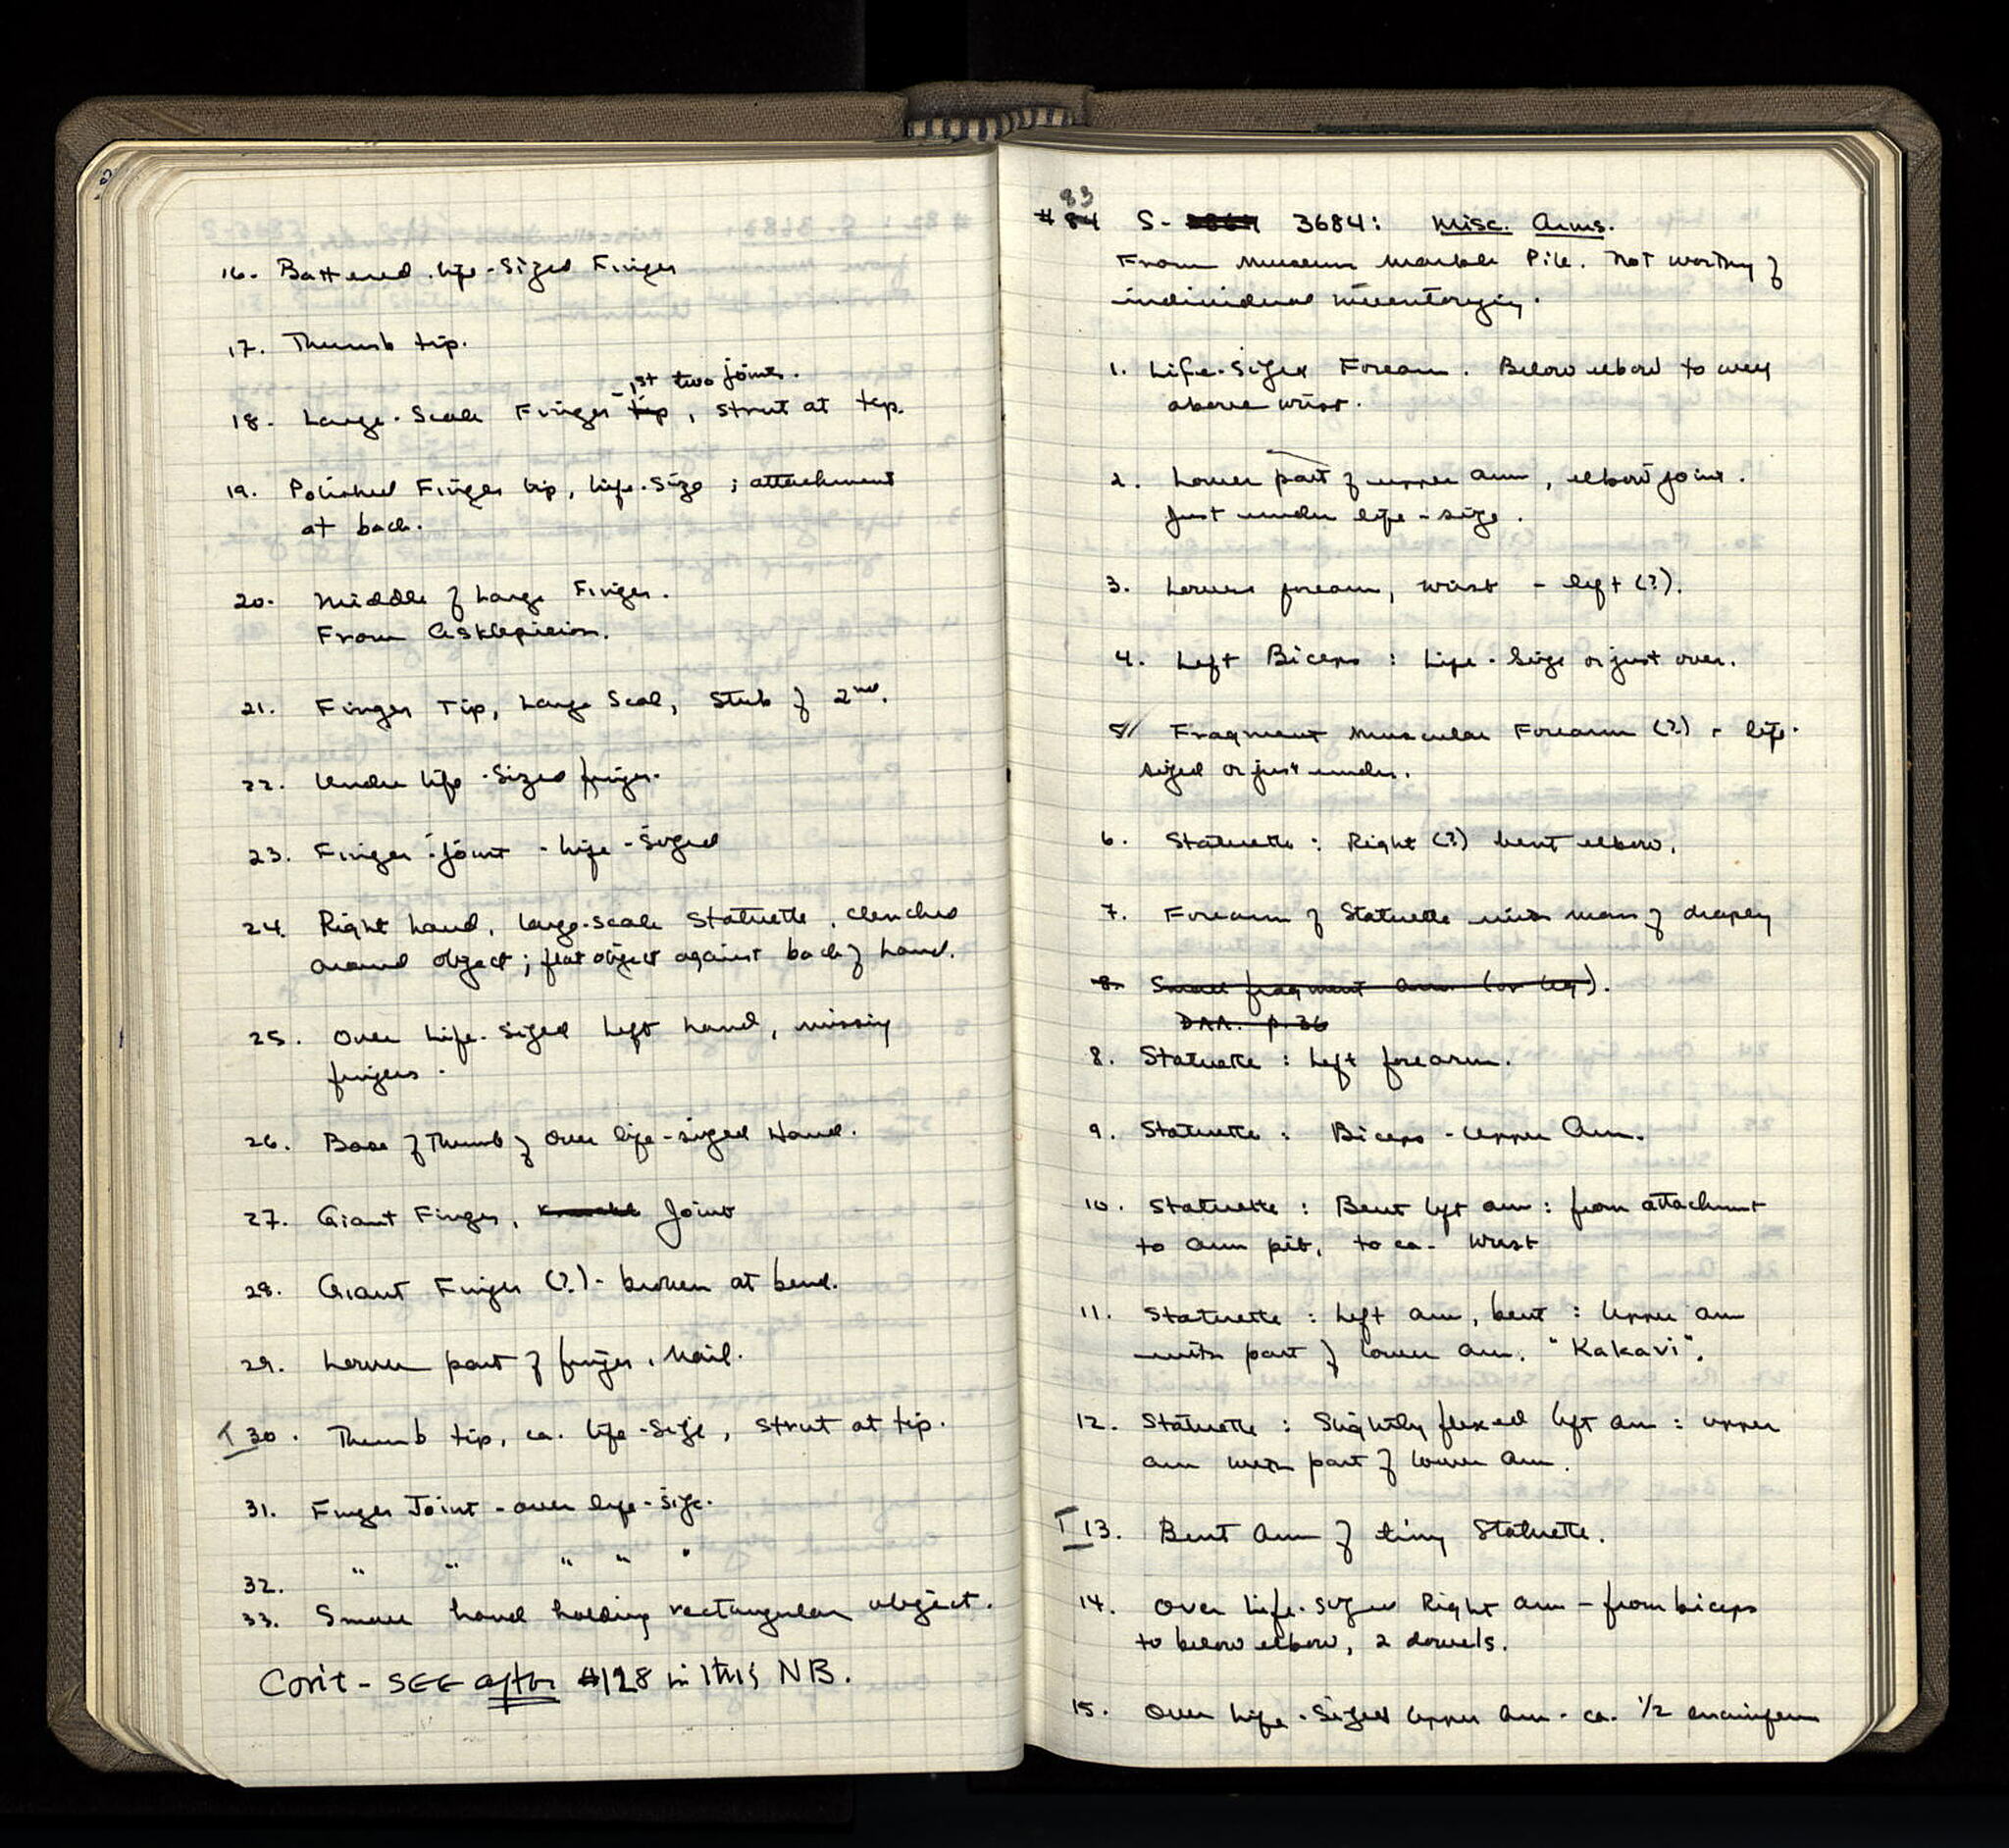 16. Battered life-sized Finger
17. Thumb tip.
1st two joints.
18. Large-Scale Finger tip, strut at top.
19. Polished Finger tip, life-size; attachment
at back.
20. Middle of Large Finger.
From Asklepieion.
21. Finger Tip, Large Scal, Stub of 2nd.
22. Under life-sized finger.
23. Finger-joint - life-sized
24. Right hand, large-scale statuette, clenched
around object; flat object against back of hand.
25. Over Life-sized Left hand, missing
fingers.
26. Base of Thumb of over life-sized Hand.
27. Giant Finger, Knuckle Joint
28. Giant Finger (?) - broken at bend.
29. Lower part of finger, Nail.
T 30. Thumb tip, ca. life-size, strut at tip.
31. Finger Joint - over life-size.
32. " " " " "
33. Small hand holding rectangular object.
Con't - SEE after #128 in this NB.
83
#84 S- 3684: Misc. Arms.
From Museum Marble Pile. Not worthy of
individual inventorying.
1. Life-sized Forearm. Below elbow to well
above wrist.
2. Lower part of upper arm, elbow joint.
Just under life-size.
3. Lower forearm, wrist - left (?).
4. Left Biceps: Life-size or just over.
5. Fragment Muscular Forearm (?) - life-
sized or just under.
6. Statuette: Right (?) bent elbow.
7. Forearm of Statuette with mass of drapery
8. Small fragment arm (or leg).
DAA. p. 36
8. Statuette: Left forearm.
9. Statuette: Biceps - Upper Arm.
10. Statuette: Bent left arm: from attachment
to arm pit, to ca. wrist
11. Statuette: Left arm, bent: Upper arm
with part of lower arm. "Kakavi".
12. Statuette: Slightly flexed left arm: upper
arm with part of lower arm.
T 13. Bent arm of tiny statuette.
14. Over Life-sized Right arm - from biceps
to below elbow, 2 dowels.
15. Over Life-Sized Upper arm - ca. 1/2